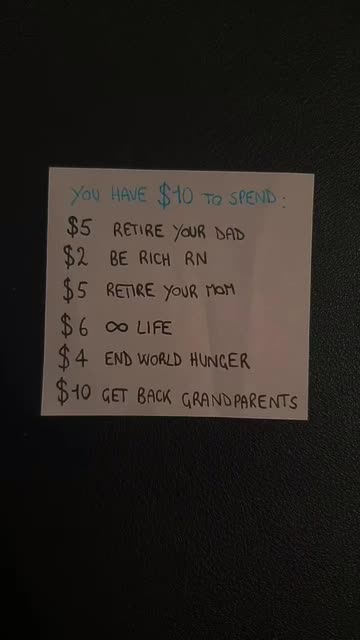 YOU HAVE $10 TO SPEND:
$5 RETIRE YOUR DAD
$2 BE RICH RN
$5 RETIRE YOUR MOM
$6 ∞ LIFE
$4 END WORLD HUNGER
$10 GET BACK GRANDPARENTS